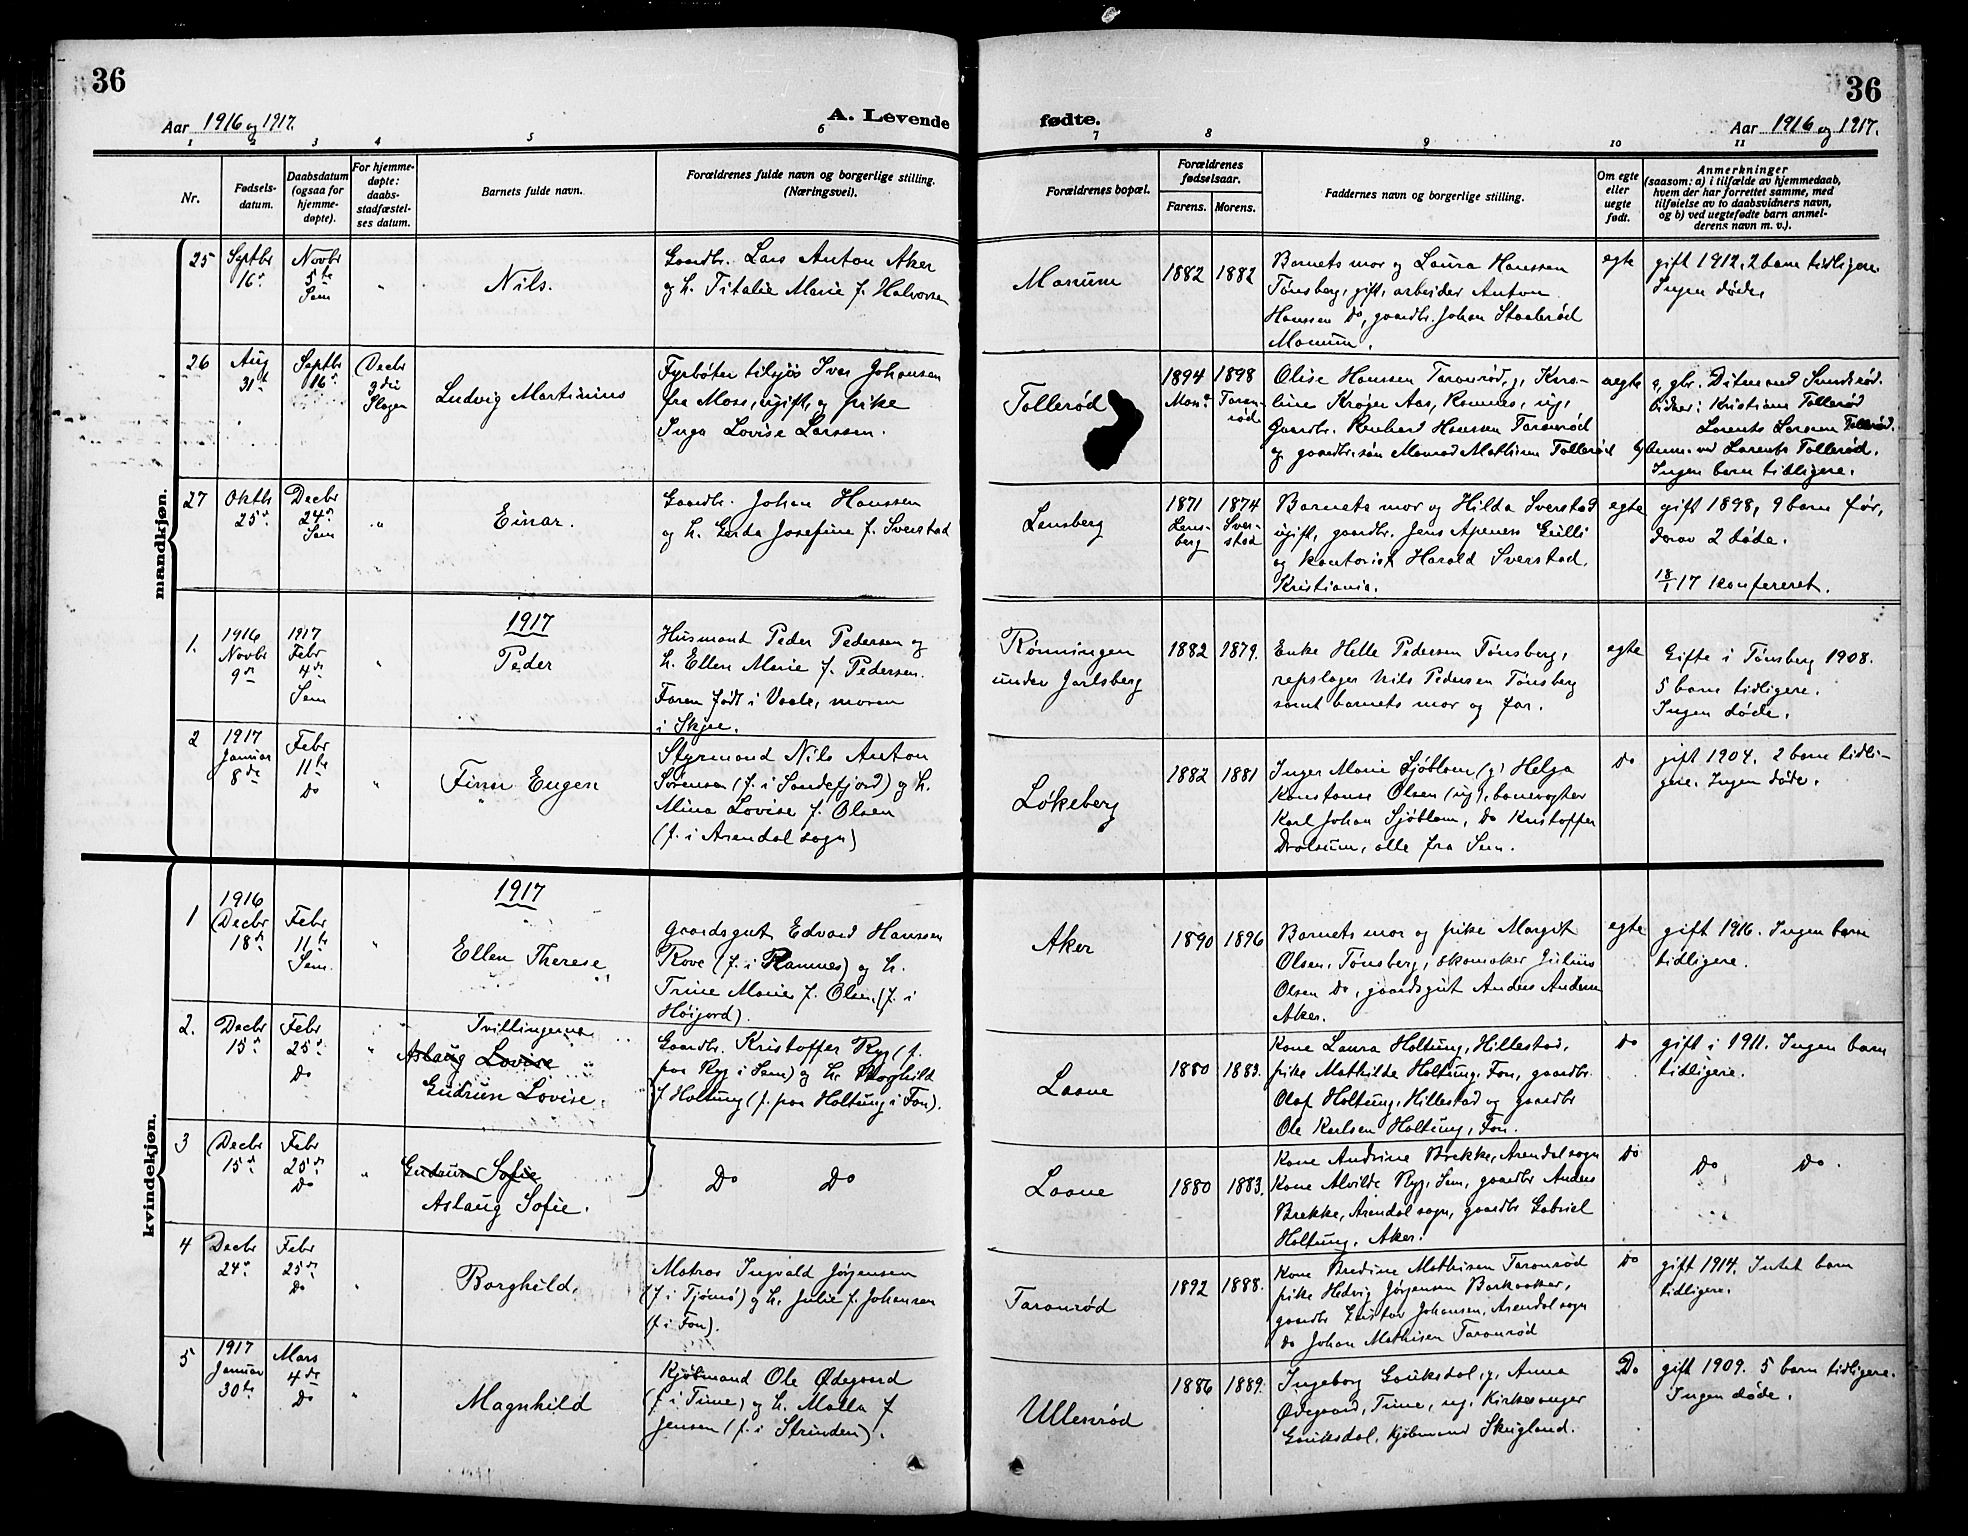 36
Aar 1916 og 1917.
A. Levende
1 2 3 4 5 6
Nr.
Fødsels-
datum.
Daabsdatum
(ogsaa for
hjemme-
døpte).
For hjemme-
døpte:
daabs-
stadfæstel-
ses datum.
Barnets fulde navn.
Forældrenes fulde navn og borgerlige stilling.
(Næringsvei).
mandkjøn.
25
Septbr
16de
Novbr
5te
Sem
"
Nils.
Gaardbr. Lars Anton Aker
og h. Titalie Marie f. Halvorsen
26
Aug
31te
Septbr
16de
Decbr
3die
Slagen
Ludvig Martinius
Fyrbøter tilsjøs Ivar Johansen
fra Moss, ugift, og pike
Inga Lovise Larssen.
27
Oktb
25de
Decbr
24de
Sem
"
Einar.
Gaardbr. Johan Hanssen
og h. Gerda Josefine f. Sverstad
1917
1.
1916
Novbr
9de
1917
Febr
4de
Sem
"
Peder
Husmand Peder Pedersen og
h. Ellen Marie f. Pedersen.
Faren født i Vaale, moren
i Skjee.
2
1917
Januar
8de
Febr
11te
Do
"
Finn Eugen
Styrmand Nils Anton
Sørensen (f. i Sandefjord) og h.
Mina Lovise f. Olsen
(f. i Arendal sogn)
kvindekjøn.
1917
1
1916
Decbr
18de
Febr
11te
Sem.
"
Ellen Therese
Gaardsgut Edvard Hanssen
Rove (f. i Ramnes) og h.
Trine Marie f. Olsen (f. i
Høijord).
2.
Decbr
15de
Febr
25de
Do
"
Tvillingerne
Aslaug Lovise
Gudrun Lovise.
Gaardbr. Kristoffer Ryg (f.
paa Ryg i Sem) og h. Borghild
f. Holtung (f. paa Holtung i Fon).
3
Decbr
15de
Febr
25de
Do
"
Gudrun Sofie
Aslaug Sofie.
Do Do
4
Decbr
24de
Febr
25de
Do
"
Borghild.
Matros Ingvald Jørgensen
(f. i Tjømø) og h. Julie f. Johansen
(f. i Fon).
5
1917
Januar
30te
Mars
4de
Do
"
Magnhild
Kjøbmand Ole Ødegaard
(f. i Time) og h. Malla f.
Jensen (f. i Strinden).
36
Aar 1916 og 1917.
fødte.
7 8 9 10 11
Forældrenes bopæl.
Forældrenes
fødselsaar.
Farens. Morens.
Faddernes navn og borgerlige stilling.
Om egte
eller
uegte
født.
Anmerkninger
(saasom: a) i tilfælde av hjemmedaab,
hvem der har forrettet samme, med
tilføielse av to daabsvidners navn,
og b) ved uegtefødte barn anmel-
derens navn m. v.).
Manum
1882 1882
Barnets mor og Laura Hanssen
Tønsberg, gift, arbeider Anton
Hanssen Do, gaardbr. Johan Staalerød
Manum.
egte
gift 1912. 2 barn tidligere.
Ingen døde.
Tollerød
1894
Moss
1898
Taran-
rød
Olise Hanssen Taranrød, g, Karo-
line Krøger Aas, Ramnes, ug,
Gaardbr. Renhard Hanssen Taranrød
og gaardbr.søn Monrad Mathisen Tollerød
uegte
a, gbr. Ditmand Sunderød.
Kristians Tollerød
Lorents Larssen Tollerød.
b) Anm. ved Lorents Tollerød.
Ingen barn tidligere.
Lensberg
1871
Lens-
berg
1874
Sver-
stad
Barnets mor og Hilda Sverstad
ugift, gaardbr. Jens Apenes Gulli
og kontorist Harald Sverstad,
Kristiania.
egte
gift 1898, 9 barn før,
derav 2 døde.
18/1 17 konfereret.
Rønningen
under Jarlsberg
1882 1879.
Enke Helle Pedersen Tønsberg,
repslager Nils Pedersen Tønsberg
samt barnets mor og far.
egte
Gifte i Tønsberg 1908.
5 barn tidligere.
Ingen døde.
Løkeberg
1882 1881
Inger Marie Sjøblom (g) Helga
Konstanse Olsen (ug), banevogter
Karl Johan Sjøblom, Do Kristoffer
Drolsum, alle fra Sem.
Do
gift 1904. 2 barn tidli-
gere. Ingen døde.
Aker
1890 1896
Barnets mor og pike Margit
Olsen, Tønsberg, skomaker Julius
Olsen Do, gaardsgut Anders Andersen
Aker.
egte
gift 1916. Ingen barn
tidligere.
Laane
1880 1883.
Kone Laura Holtung, Hillestad,
pike Mathilde Holtung, Fon, gaardbr.
Olaf Holtung, Hillestad og gaardbr
Ole Karlsen Holtung, Fon.
Do
gift i 1911. Ingen barn
tidligere.
Laane
1880 1883.
Kone Andrine Brekke, Arendal sogn
Kone Alvilde Ryg, Sem, gaardbr Anders
Brekke, Arendal sogn, gaardbr Gabriel
Holtung, Aker.
Do
Do Do.
Taranrød
1892 1888.
Kone Bredine Mathisen Taranrød
pike Hedvig Jørgensen Barkaaker,
gaardbr Gustav Johansen, Arendal sogn
Do Johan Mathisen Taranrød
Do
gift 1914. Intet barn
tidligere.
Ullenrød
1886 1889.
Ingeborg Gauksdal, g, Anna
Ødegaard, Time, ug. Kirkesanger
Gauksdal, kjøbmand Skugland.
Do
gift 1909. 5 barn tidligere.
Ingen døde.